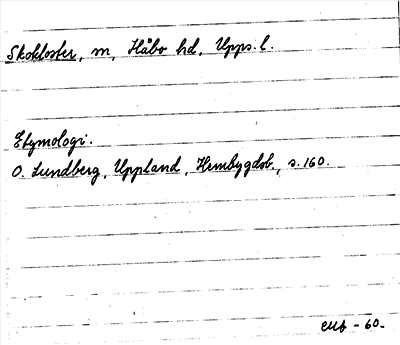 Skokloster, m, Håbo hd, Upps. l.
Etymologi.
O. Lundberg, Uppland, Hembygdsb., s. 160.
EUb - 60.